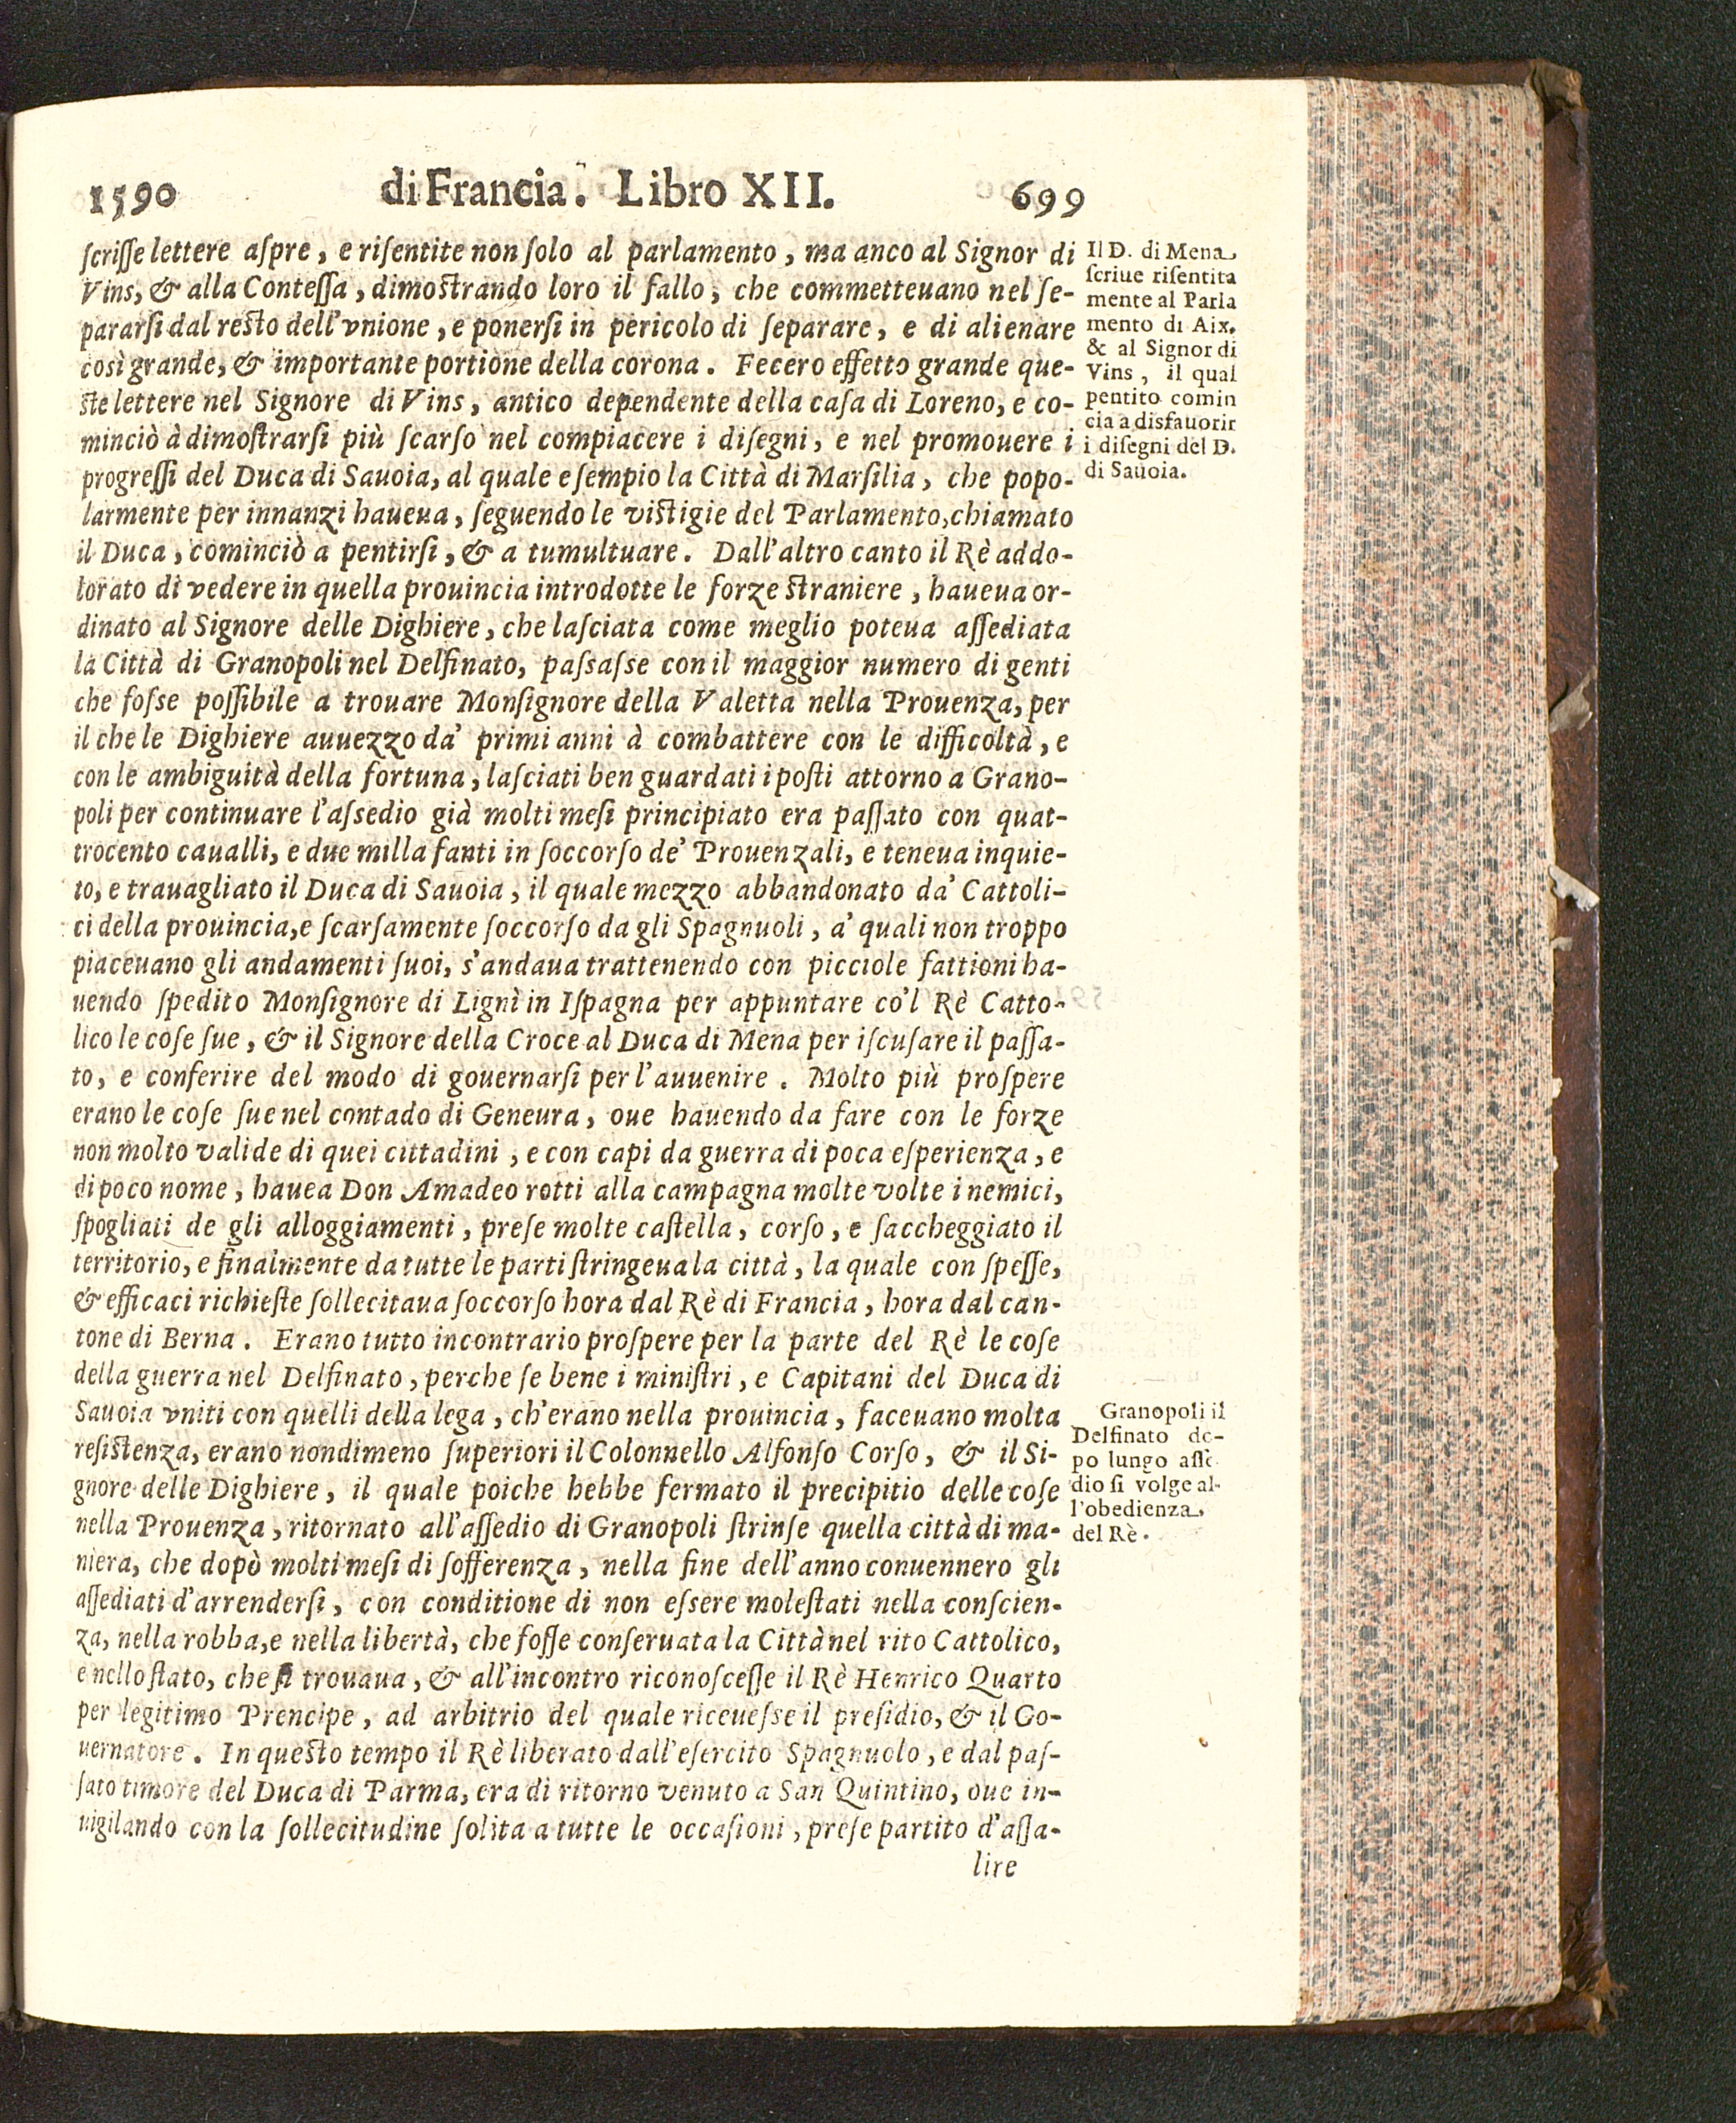 1590 di Francia. Libro XII. 699
ſcriſſe lettere aſpre, e riſentite non ſolo al parlamento, ma anco al Signor di
Vins, & alla Conteſſa, dimoſtrando loro il fallo, che commetteuano nel ſe-
pararſi dal reſto dell'vnione, e ponerſi in pericolo di ſeparare, e di alienare
così grande, & importante portione della corona. Fecero effetto grande que-
ſte lettere nel Signore di Vins, antico dependente della caſa di Loreno, e co-
minciò à dimoſtrarſi più ſcarſo nel compiacere i diſegni, e nel promouere i
progreſſi del Duca di Sauoia, al quale eſempio la Città di Marſilia, che popo-
larmente per innanzi haueua, ſeguendo le viſtigie del Parlamento, chiamato
il Duca, cominciò a pentirſi, & a tumultuare. Dall'altro canto il Rè addo-
lorato di vedere in quella prouincia introdotte le forze ſtraniere, haueua or-
dinato al Signore delle Dighiere, che laſciata come meglio poteua aſſediata
la Città di Granopoli nel Delfinato, paſsaſse con il maggior numero di genti
che foſse poſſibile a trouare Monſignore della Valetta nella Prouenza, per
il che le Dighiere auuezzo da' primi anni à combattere con le difficoltà, e
con le ambiguità della fortuna, laſciati ben guardati i poſti attorno a Grano-
poli per continuare l'aſsedio già molti meſi principiato era paſſato con quat-
trocento caualli, e due milla fanti in ſoccorſo de' Prouenzali, e teneua inquie-
to, e trauagliato il Duca di Sauoia, il quale mezzo abbandonato da' Cattoli-
ci della prouincia, e ſcarſamente ſoccorſo da gli Spagnuoli, a' quali non troppo
piaceuano gli andamenti ſuoi, s'andaua trattenendo con picciole fattioni ha-
uendo ſpedito Monſignore di Lignì in Iſpagna per appuntare co'l Rè Catto-
lico le coſe ſue, & il Signore della Croce al Duca di Mena per iſcuſare il paſſa-
to, e conferire del modo di gouernarſi per l'auuenire. Molto più proſpere
erano le coſe ſue nel contado di Geneura, oue hauendo da fare con le forze
non molto valide di quei cittadini, e con capi da guerra di poca eſperienza, e
di poco nome, hauea Don Amadeo rotti alla campagna molte volte i nemici,
ſpogliati de gli alloggiamenti, preſe molte caſtella, corſo, e ſaccheggiato il
territorio, e finalmente da tutte le parti ſtringeua la città, la quale con ſpeſſe,
& efficaci richieſte ſollecitaua ſoccorſo hora dal Rè di Francia, hora dal can-
tone di Berna. Erano tutto in contrario proſpere per la parte del Rè le coſe
della guerra nel Delfinato, perche ſe bene i miniſtri, e Capitani del Duca di
Sauoia vniti con quelli della lega, ch'erano nella prouincia, faceuano molta
reſiſtenza, erano nondimeno ſuperiori il Colonnello Alfonſo Corſo, & il Si-
gnore delle Dighiere, il quale poiche hebbe fermato il precipitio delle coſe
nella Prouenza, ritornato all'aſſedio di Granopoli ſtrinſe quella città di ma-
niera, che dopò molti meſi di ſofferenza, nella fine dell'anno conuennero gli
aſſediati d'arrenderſi, con conditione di non eſsere moleſtati nella conſcien-
za, nella robba, e nella libertà, che foſſe conſeruata la Città nel rito Cattolico,
e nello ſtato, che ſi trouaua, & all'incontro riconoſceſſe il Rè Henrico Quarto
per legitimo Prencipe, ad arbitrio del quale riceueſse il preſidio, & il Go-
uernatore. In queſto tempo il Rè liberato dall'eſercito Spagnuolo, e dal paſ-
ſato timore del Duca di Parma, era di ritorno venuto a San Quintino, oue in-
uigilando con la ſollecitudine ſolita a tutte le occaſioni, preſe partito d'aſſa-
lire
Il D. di Mena
ſcriue riſentita
mente al Parla
mento di Aix.
& al Signor di
Vins, il qual
pentito comin
cia a disfauorir
i diſegni del D.
di Sauoia.
Granopoli il
Delfinato do-
po lungo aſſe
dio ſi volge al-
l'obedienza
del Rè.